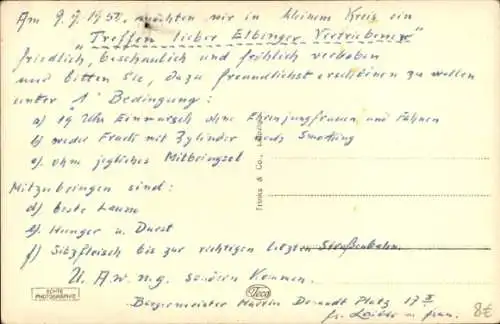 Am 9.7.1955. möchten wir in kleinem Kreis ein
"Treffen lieber Elbinger Vertriebener"
friedlich, beschaulich und fröhlich verleben
und bitten Sie, dazu freundlichst erscheinen zu wollen
unter "1" Bedingung:
a) 19 Uhr Einmarsch ohne Ehrenjungfrauen und Fahnen
b) weder Frack mit Zylinder noch Smoking
c) ohne jegliches Mitbringsel
Mitzubringen sind:
d) beste Laune
e) Hunger u. Durst
f) Sitzfleisch bis zur richtigen letzten Straßenbahn.
U. A. w. ng. sondern Kommen.
Bürgermeister Martin Platz 17 II
fr. u. frau.
Trinks & Co., Leipzig
ECHTE PHOTOGRAPHIE
Teco
8€